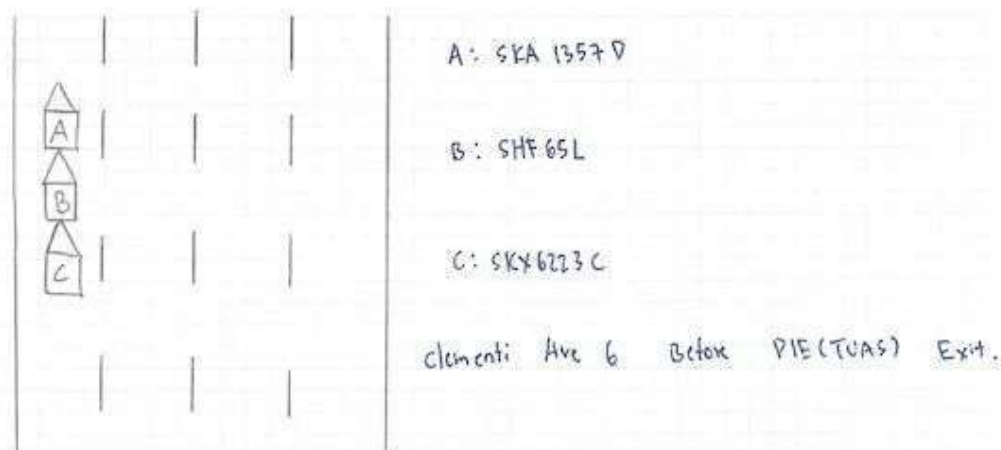 A: SKA 1357 D
A
B: SHF 65L
B
C: SKX6223C
C
Clementi Ave 6 Before PIE(TUAS) Exit.